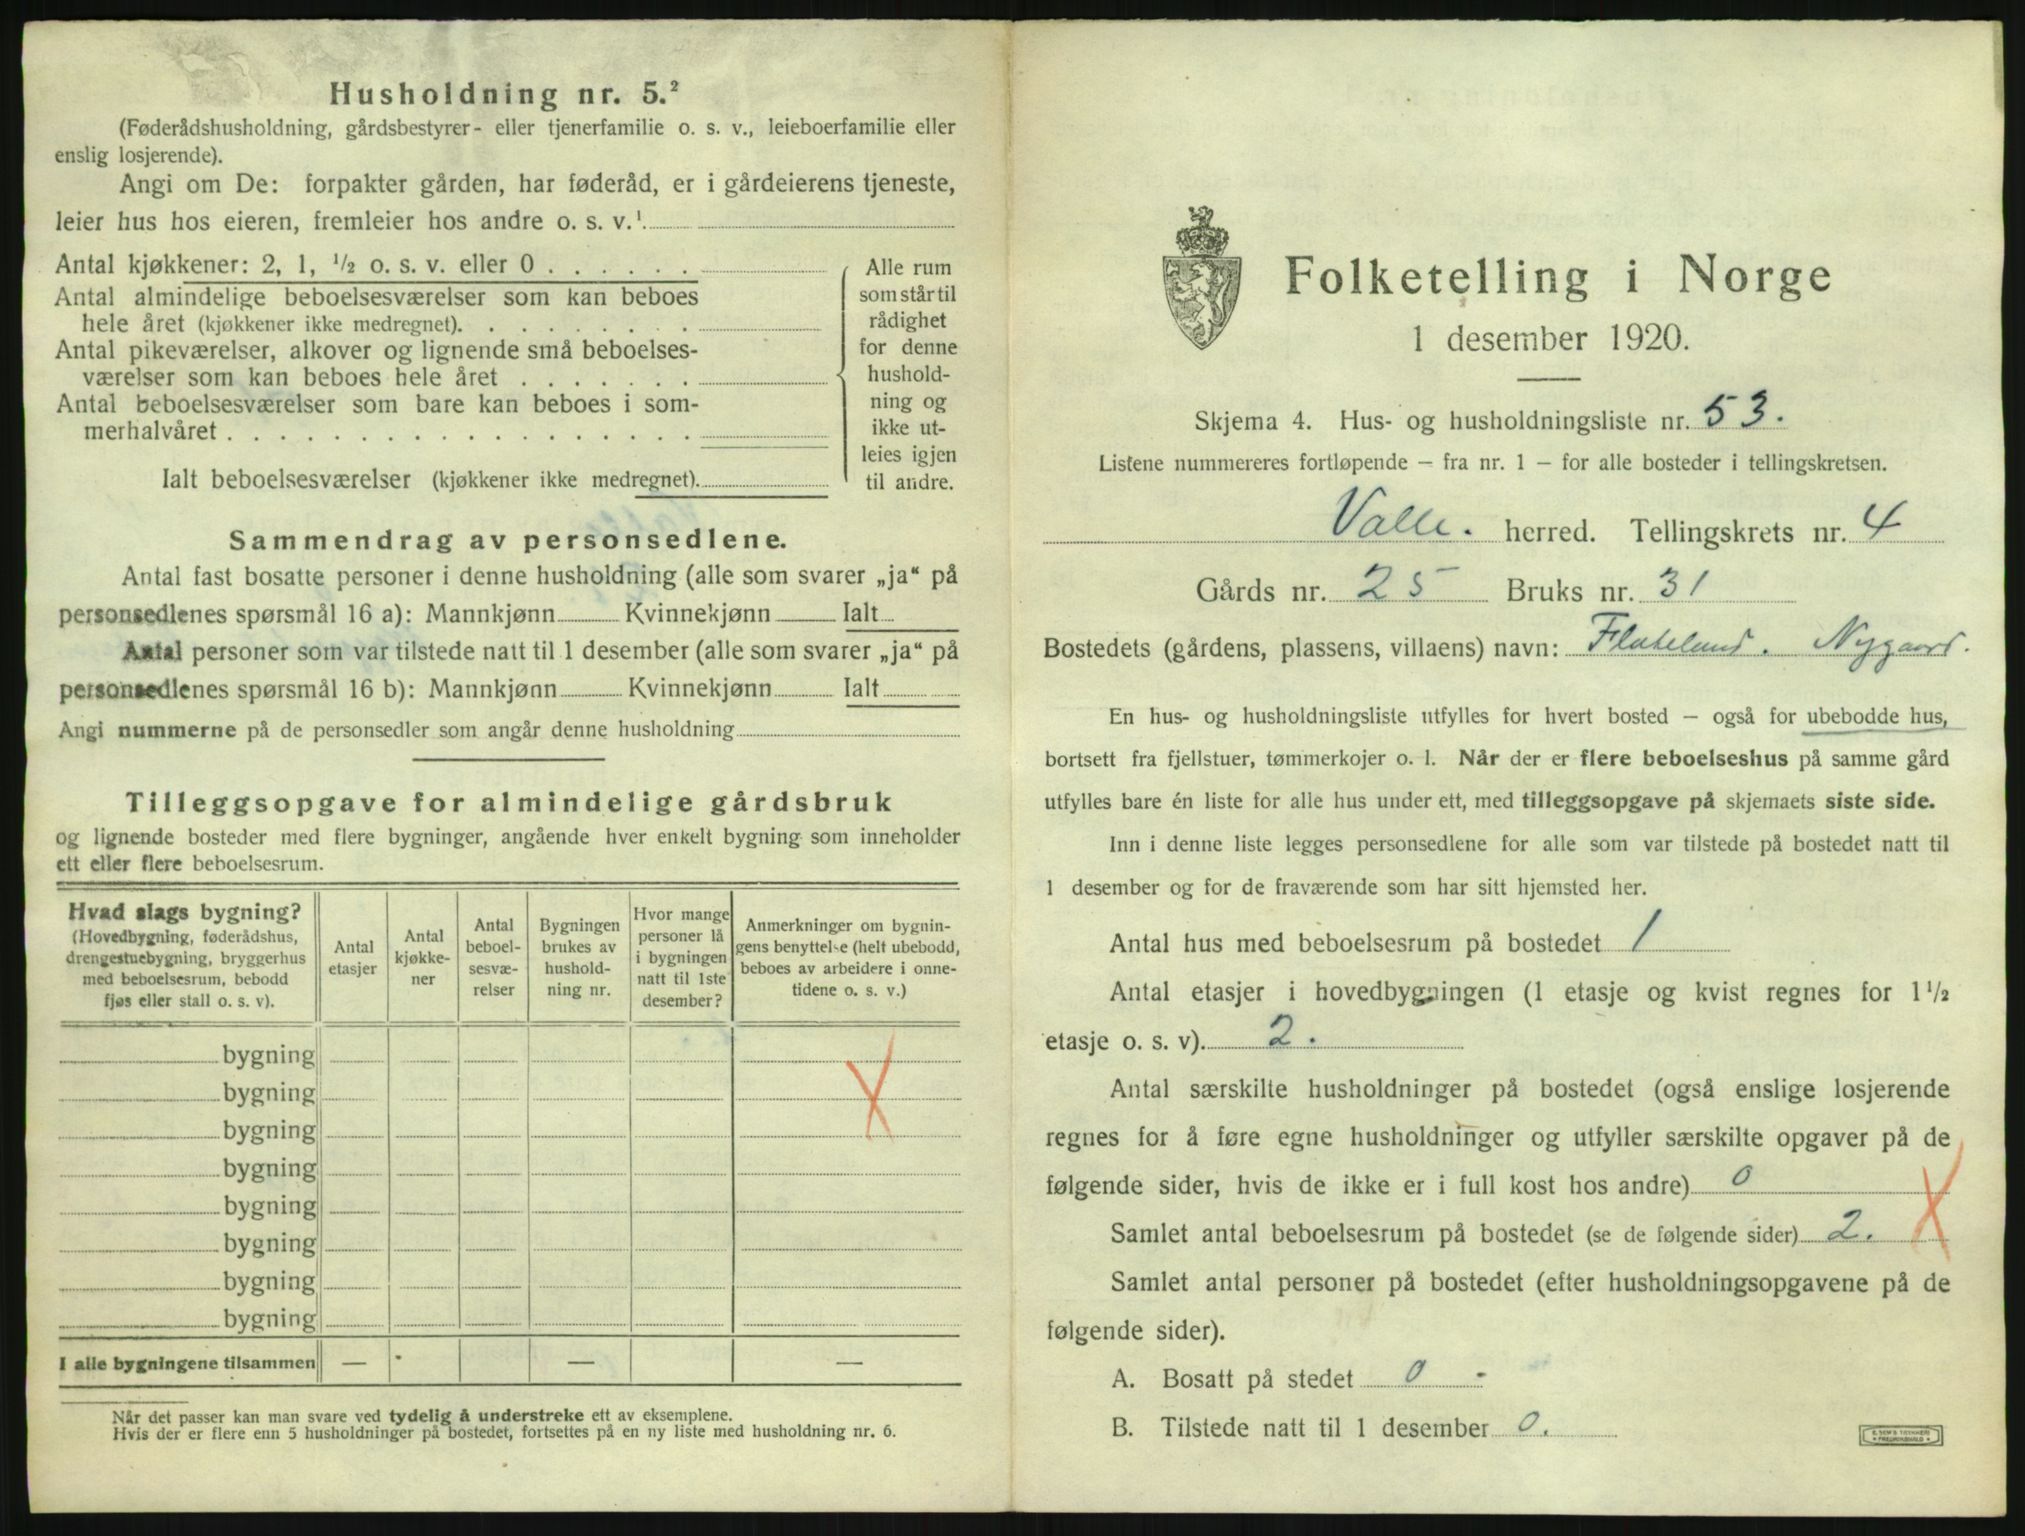 Husholdning nr. 5.²
(Føderådshusholdning, gårdsbestyrer- eller tjenerfamilie o. s. v., leieboerfamilie eller
enslig losjerende).
Angi om De: forpakter gården, har føderåd, er i gårdeierens tjeneste,
leier hus hos eieren, fremleier hos andre o. s. v.¹
Antal kjøkkener: 2, 1, ½ o. s. v. eller 0 . . . . . .
Antal almindelige beboelsesværelser som kan beboes
hele året (kjøkkener ikke medregnet). . . . . . . . .
Antal pikeværelser, alkover og lignende små beboelses-
værelser som kan beboes hele året . . . . . . .
Antal beboelsesværelser som bare kan beboes i som-
merhalvåret . . . . . . . . . . . . . . . . . .
Ialt beboelsesværelser (kjøkkener ikke medregnet).
Alle rum
som står til
rådighet
for denne
hushold-
ning og
ikke ut-
leies igjen
til andre.
Sammendrag av personsedlene.
Antal fast bosatte personer i denne husholdning (alle som svarer „ja“ på
personsedlenes spørsmål 16 a): Mannkjønn Kvinnekjønn Ialt
Antal personer som var tilstede natt til 1 desember (alle som svarer „ja“ på
personsedlenes spørsmål 16 b): Mannkjønn Kvinnekjønn Ialt
Angi nummerne på de personsedler som angår denne husholdning
Tilleggsopgave for almindelige gårdsbruk
og lignende bosteder med flere bygninger, angående hver enkelt bygning som inneholder
ett eller flere beboelsesrum.
Hvad slags bygning?
(Hovedbygning, føderådshus,
drengestuebygning, bryggerhus
med beboelsesrum, bebodd
fjøs eller stall o. s. v).
Antal
etasjer
Antal
kjøkke-
ner
Antal
beboel-
sesvæ-
relser
Bygningen
brukes av
hushold-
ning nr.
Hvor mange
personer lå
i bygningen
natt til 1ste
desember?
Anmerkninger om bygnin-
gens benyttelse (helt ubebodd,
beboes av arbeidere i onne-
tidene o. s. v.)
bygning
bygning
bygning
bygning
bygning
bygning
bygning
bygning
I alle bygningene tilsammen — — —
Når det passer kan man svare ved tydelig å understreke ett av eksemplene.
Hvis der er flere enn 5 husholdninger på bostedet, fortsettes på en ny liste med husholdning nr. 6.
Folketelling i Norge
1 desember 1920.
Skjema 4. Hus- og husholdningsliste nr. 53.
Listene nummereres fortløpende – fra nr. 1 – for alle bosteder i tellingskretsen.
Valle. herred. Tellingskrets nr. 4
Gårds nr. 25 Bruks nr. 31
Bostedets (gårdens, plassens, villaens) navn: Flateland. Nygaard.
En hus- og husholdningsliste utfylles for hvert bosted – også for ubebodde hus,
bortsett fra fjellstuer, tømmerkojer o. l. Når der er flere beboelseshus på samme gård
utfylles bare én liste for alle hus under ett, med tilleggsopgave på skjemaets siste side.
Inn i denne liste legges personsedlene for alle som var tilstede på bostedet natt til
1 desember og for de fraværende som har sitt hjemsted her.
Antal hus med beboelsesrum på bostedet 1
Antal etasjer i hovedbygningen (1 etasje og kvist regnes for 1½
etasje o. s. v). 2.
Antal særskilte husholdninger på bostedet (også enslige losjerende
regnes for å føre egne husholdninger og utfyller særskilte opgaver på de
følgende sider, hvis de ikke er i full kost hos andre) 0
Samlet antal beboelsesrum på bostedet (se de følgende sider) 2.
Samlet antal personer på bostedet (efter husholdningsopgavene på de
følgende sider).
A. Bosatt på stedet 0 -
B. Tilstede natt til 1 desember 0.